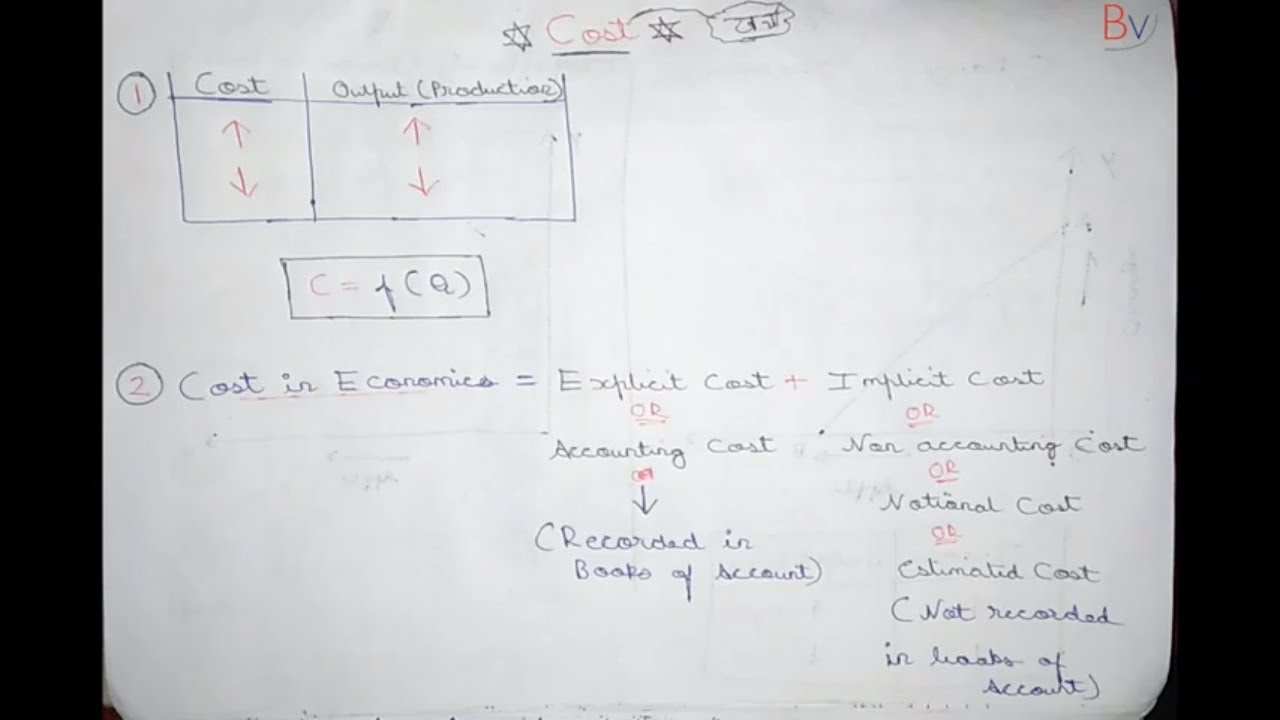 Cost खर्च
BV
1 Cost Output (Production)
↑ ↑
↓ ↓
C = f(Q)
2 Cost in Economics = Explicit Cost + Implicit Cost
OR OR
Accounting Cost Non accounting Cost
OR
↓ Notional Cost
(Recorded in OR
Books of Account) Estimated Cost
(Not recorded
in books of
Account)